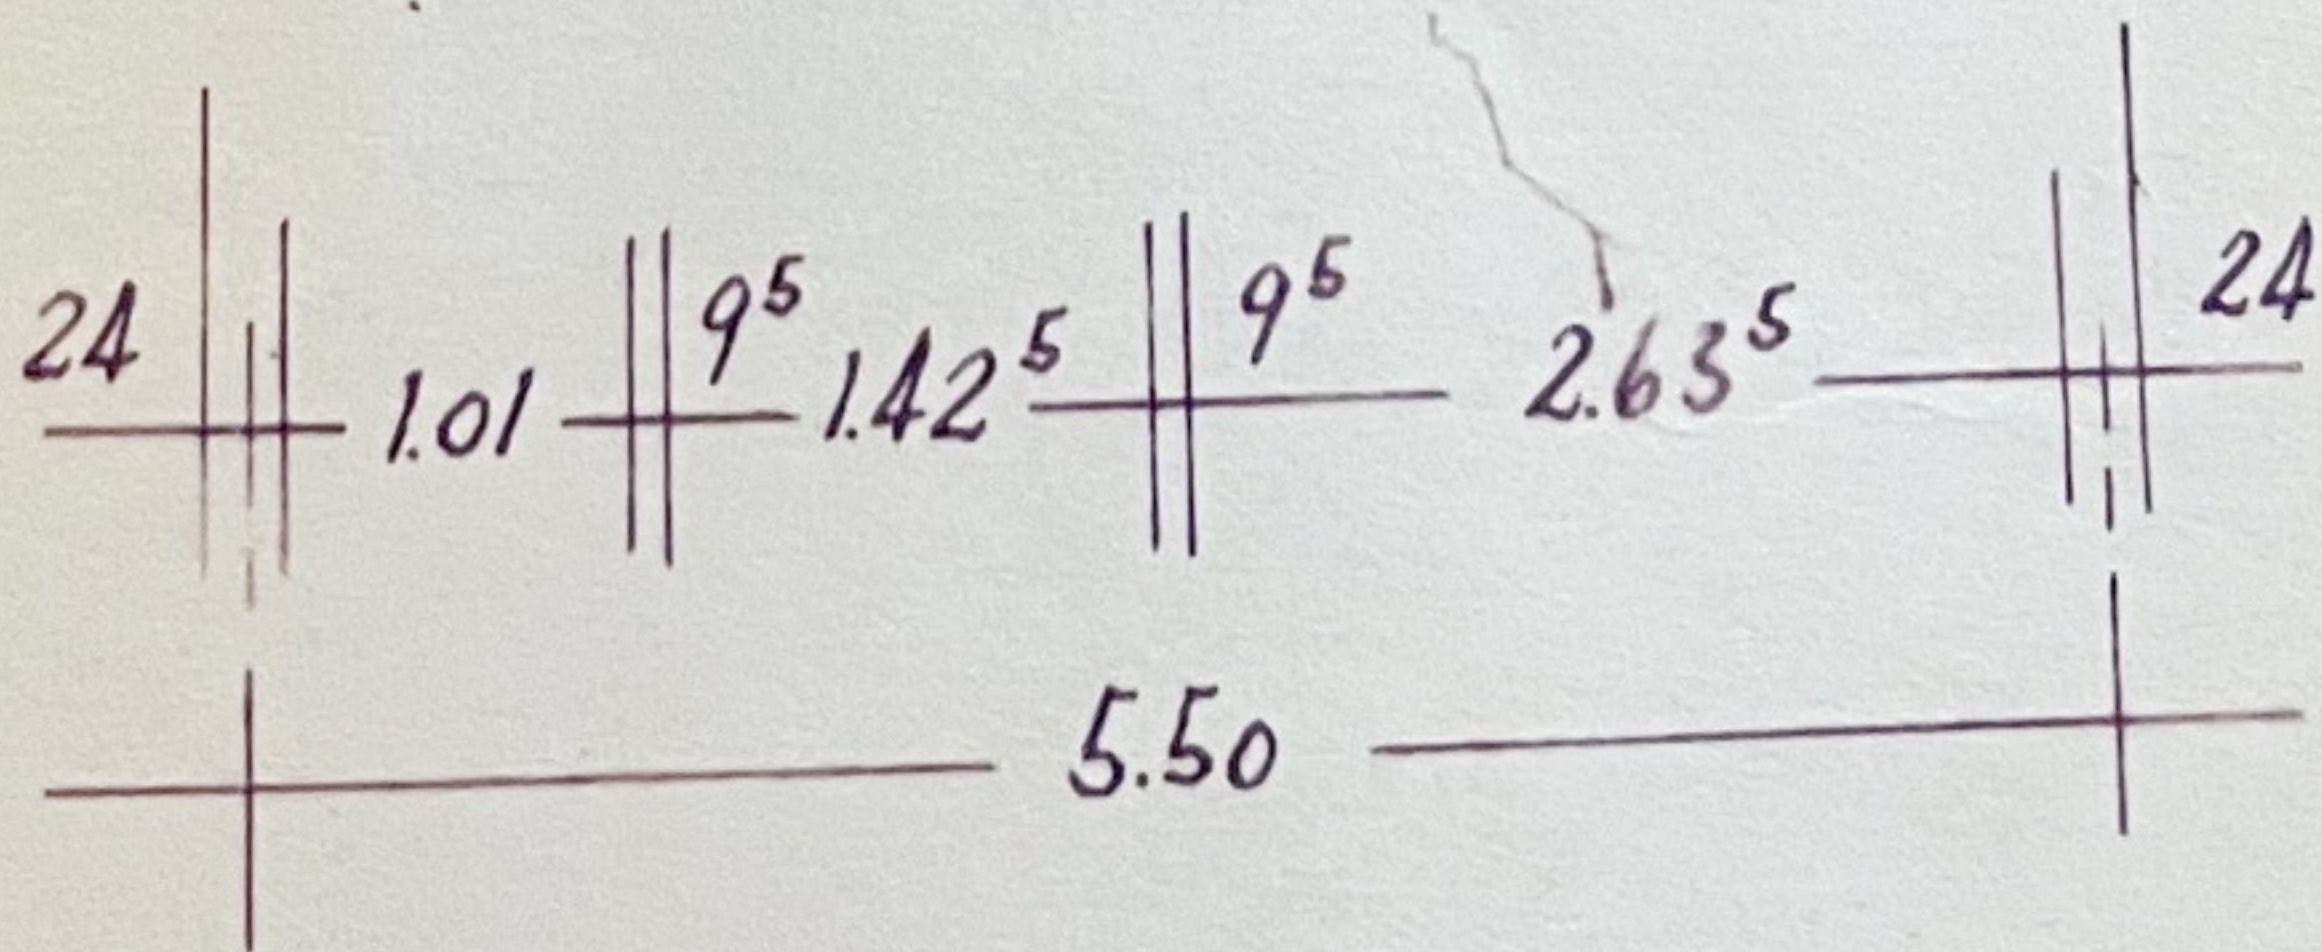 24 1.01 9⁵ 1.42⁵ 9⁵ 2.63⁵ 24
5.50